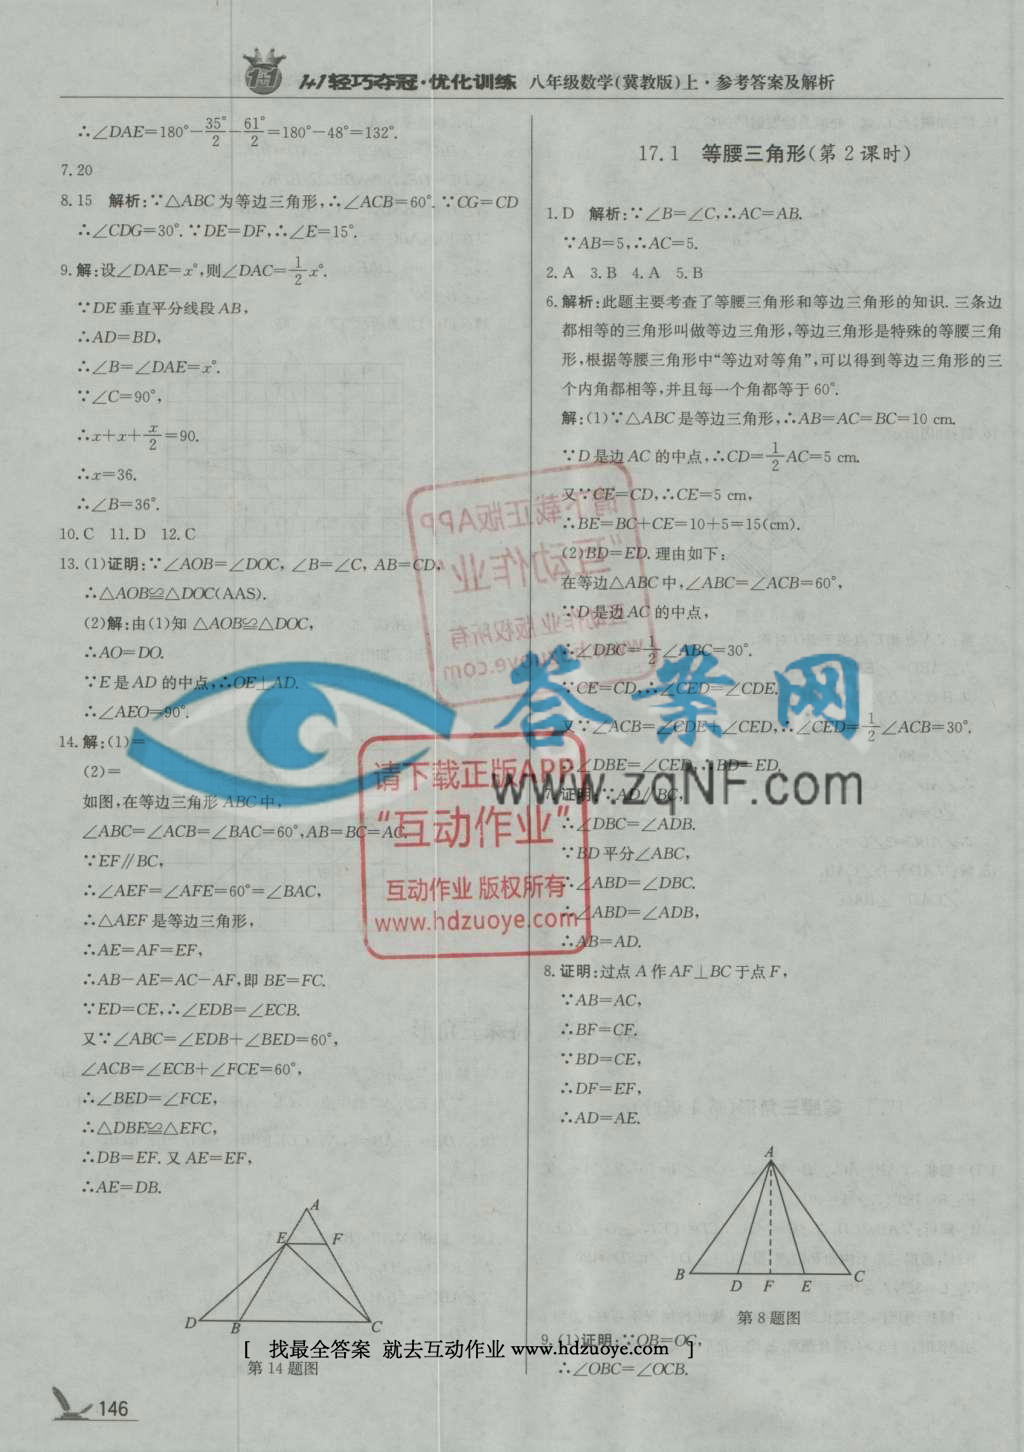 1+1轻巧夺冠·优化训练 八年级数学(冀教版)上·参考答案及解析
∴∠DAE=180°-35°/2-61°/2=180°-48°=132°.
7.20
8.15 解析:∵△ABC为等边三角形,∴∠ACB=60°.∵CG=CD
∴∠CDG=30°.∵DE=DF,∴∠E=15°.
9.解:设∠DAE=x°,则∠DAC=1/2x°.
∵DE垂直平分线段AB,
∴AD=BD,
∴∠B=∠DAE=x°.
∵∠C=90°,
∴x+x+x/2=90.
∴x=36.
∴∠B=36°.
10.C 11.D 12.C
13.(1)证明:∵∠AOB=∠DOC,∠B=∠C,AB=CD,
∴△AOB≌△DOC(AAS).
(2)解:由(1)知 △AOB≌△DOC,
∴AO=DO.
∵E是AD的中点,∴OE⊥AD.
∴∠AEO=90°.
14.解:(1)=
(2)=
如图,在等边三角形ABC中,
∠ABC=∠ACB=∠BAC=60°,AB=BC=AC.
∵EF∥BC,
∴∠AEF=∠AFE=60°=∠BAC,
∴△AEF是等边三角形,
∴AE=AF=EF,
∴AB-AE=AC-AF,即BE=FC.
∵ED=CE,∴∠EDB=∠ECB.
又∵∠ABC=∠EDB+∠BED=60°,
∠ACB=∠ECB+∠FCE=60°,
∴∠BED=∠FCE,
∴△DBE≌△EFC,
∴DB=EF.又AE=EF,
∴AE=DB.
A
E F
D B C
第14题图
17.1 等腰三角形(第2课时)
1.D 解析:∵∠B=∠C,∴AC=AB.
∵AB=5,∴AC=5.
2.A 3.B 4.A 5.B
6.解析:此题主要考查了等腰三角形和等边三角形的知识.三条边
都相等的三角形叫做等边三角形,等边三角形是特殊的等腰三角
形,根据等腰三角形中“等边对等角”,可以得到等边三角形的三
个内角都相等,并且每一个角都等于60°.
解:(1)∵△ABC是等边三角形,∴AB=AC=BC=10 cm.
∵D是边AC的中点,∴CD=1/2AC=5 cm.
又∵CE=CD,∴CE=5 cm,
∴BE=BC+CE=10+5=15(cm).
(2)BD=ED.理由如下:
在等边△ABC中,∠ABC=∠ACB=60°,
∵D是边AC的中点,
∴∠DBC=1/2∠ABC=30°.
∵CE=CD,∴∠CED=∠CDE.
又∵∠ACB=∠CDE+∠CED,∴∠CED=1/2∠ACB=30°.
∴∠DBE=∠CED,∴BD=ED.
7.证明:∵AD∥BC,
∴∠DBC=∠ADB.
∵BD平分∠ABC,
∴∠ABD=∠DBC.
∴∠ABD=∠ADB,
∴AB=AD.
8.证明:过点A作AF⊥BC于点F,
∵AB=AC,
∴BF=CF.
∵BD=CE,
∴DF=EF,
∴AD=AE.
A
B D F E C
第8题图
9.(1)证明:∵OB=OC,
∴∠OBC=∠OCB.
答案网
www.zqNF.com
请下载正版APP
“互动作业”
互动作业 版权所有
www.hdzuoye.com
[ 找最全答案 就去互动作业 www.hdzuoye.com ]
146